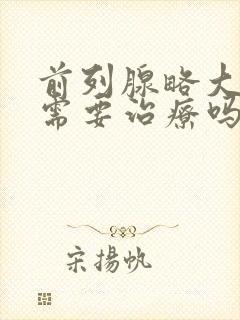 前列腺略大
需要治疗吗
宋揚帆